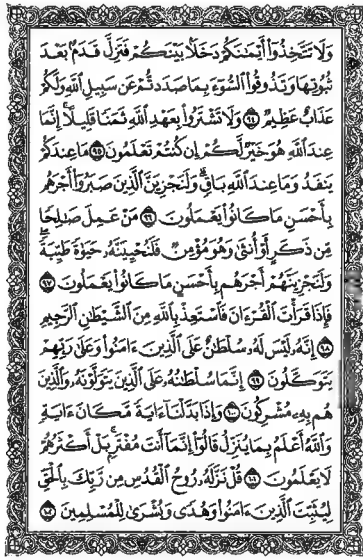 وَلَا تَتَّخِذُوٓا۟ أَيْمَٰنَكُمْ دَخَلًۢا بَيْنَكُمْ فَتَزِلَّ قَدَمٌۢ بَعْدَ
ثُبُوتِهَا وَتَذُوقُوا۟ ٱلسُّوٓءَ بِمَا صَدَدتُّمْ عَن سَبِيلِ ٱللَّهِ وَلَكُمْ
عَذَابٌ عَظِيمٌ ٩٤ وَلَا تَشْتَرُوا۟ بِعَهْدِ ٱللَّهِ ثَمَنًا قَلِيلًا ۚ إِنَّمَا
عِندَ ٱللَّهِ هُوَ خَيْرٌ لَّكُمْ إِن كُنتُمْ تَعْلَمُونَ ٩٥ مَا عِندَكُمْ
يَنفَدُ وَمَا عِندَ ٱللَّهِ بَاقٍ ۗ وَلَنَجْزِيَنَّ ٱلَّذِينَ صَبَرُوٓا۟ أَجْرَهُم
بِأَحْسَنِ مَا كَانُوا۟ يَعْمَلُونَ ٩٦ مَنْ عَمِلَ صَٰلِحًا
مِّن ذَكَرٍ أَوْ أُنثَىٰ وَهُوَ مُؤْمِنٌ فَلَنُحْيِيَنَّهُۥ حَيَوٰةً طَيِّبَةً ۖ
وَلَنَجْزِيَنَّهُمْ أَجْرَهُم بِأَحْسَنِ مَا كَانُوا۟ يَعْمَلُونَ ٩٧
فَإِذَا قَرَأْتَ ٱلْقُرْءَانَ فَٱسْتَعِذْ بِٱللَّهِ مِنَ ٱلشَّيْطَٰنِ ٱلرَّجِيمِ
٩٨ إِنَّهُۥ لَيْسَ لَهُۥ سُلْطَٰنٌ عَلَى ٱلَّذِينَ ءَامَنُوا۟ وَعَلَىٰ رَبِّهِمْ
يَتَوَكَّلُونَ ٩٩ إِنَّمَا سُلْطَٰنُهُۥ عَلَى ٱلَّذِينَ يَتَوَلَّوْنَهُۥ وَٱلَّذِينَ
هُم بِهِۦ مُشْرِكُونَ ١٠٠ وَإِذَا بَدَّلْنَآ ءَايَةً مَّكَانَ ءَايَةٍ ۙ
وَٱللَّهُ أَعْلَمُ بِمَا يُنَزِّلُ قَالُوٓا۟ إِنَّمَآ أَنتَ مُفْتَرٍۭ ۚ بَلْ أَكْثَرُهُمْ
لَا يَعْلَمُونَ ١٠١ قُلْ نَزَّلَهُۥ رُوحُ ٱلْقُدُسِ مِن رَّبِّكَ بِٱلْحَقِّ
لِيُثَبِّتَ ٱلَّذِينَ ءَامَنُوا۟ وَهُدًى وَبُشْرَىٰ لِلْمُسْلِمِينَ ١٠٢